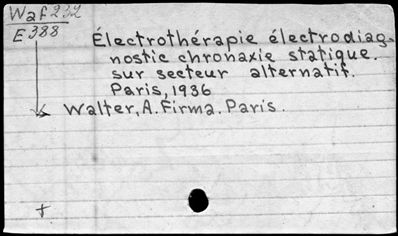 Waf 232
E 388
Électrothérapie électrodiag-
nostic chronaxie statique.
sur secteur alternatif.
Paris, 1936
Walter, A. Firma. Paris.
+